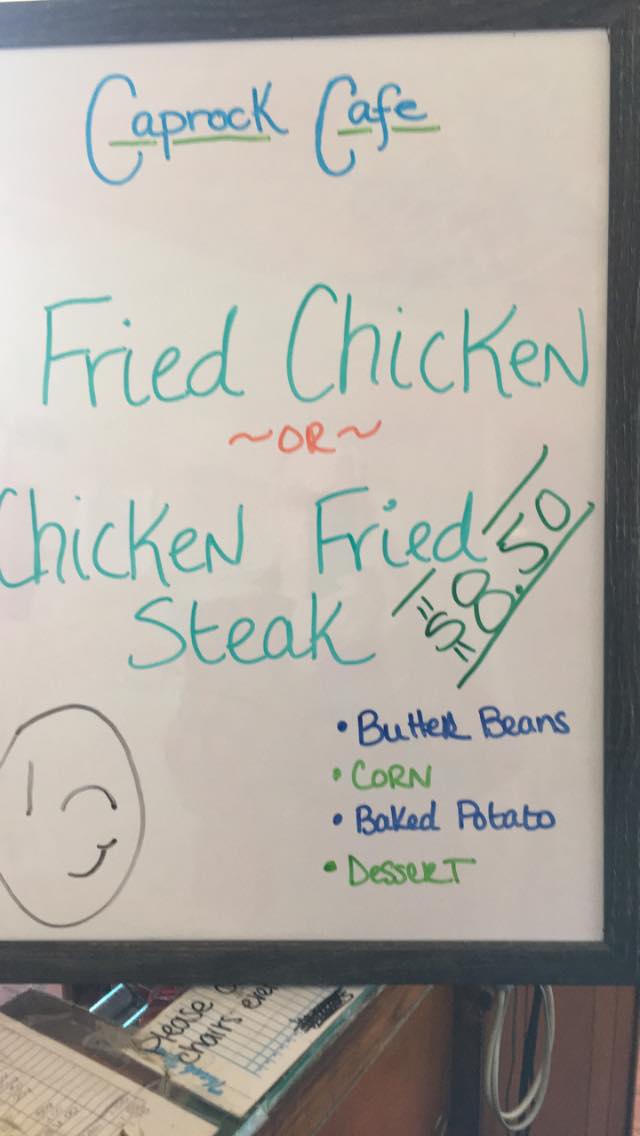 Caprock Cafe
Fried Chicken
~OR~
Chicken Fried
Steak
$8.50
• Butter Beans
• Corn
• Baked Potato
• Dessert
Please
chairs